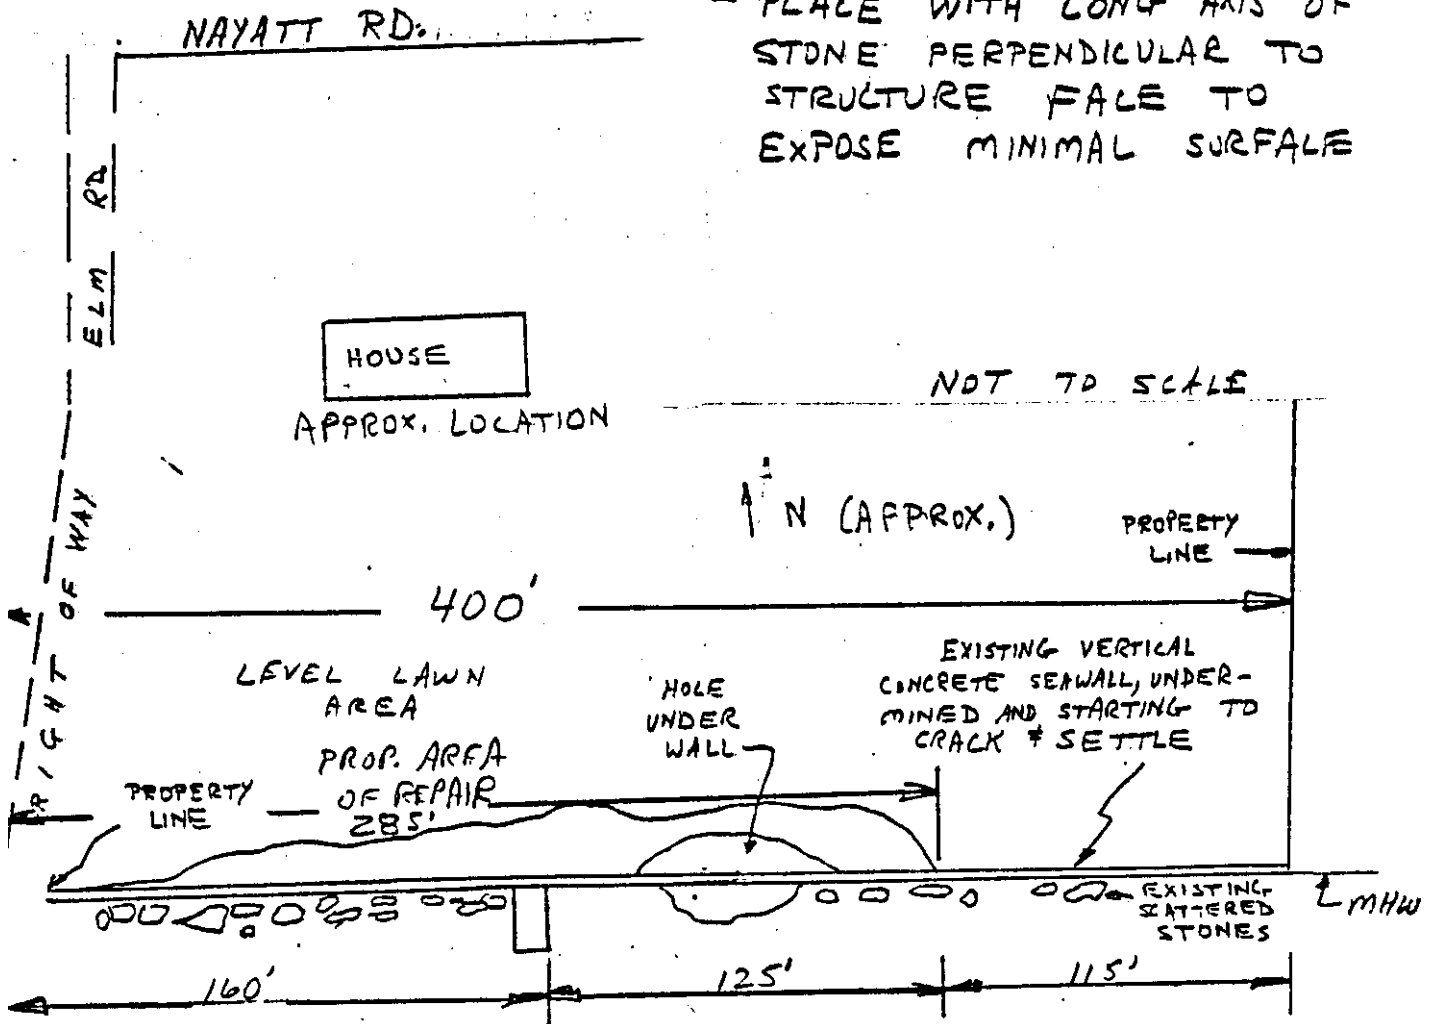 PLACE WITH LONG AXIS OF
STONE PERPENDICULAR TO
STRUCTURE FACE TO
EXPOSE MINIMAL SURFACE
NAYATT RD.
ELM RD
HOUSE
APPROX. LOCATION
NOT TO SCALE
N (APPROX.)
PROPERTY
LINE
RIGHT OF WAY
400'
LEVEL LAWN
AREA
HOLE
UNDER
WALL
EXISTING VERTICAL
CONCRETE SEAWALL, UNDER-
MINED AND STARTING TO
CRACK & SETTLE
PROP. AREA
OF REPAIR
285'
PROPERTY
LINE
EXISTING
SCATTERED
STONES
MHW
160'
125'
115'